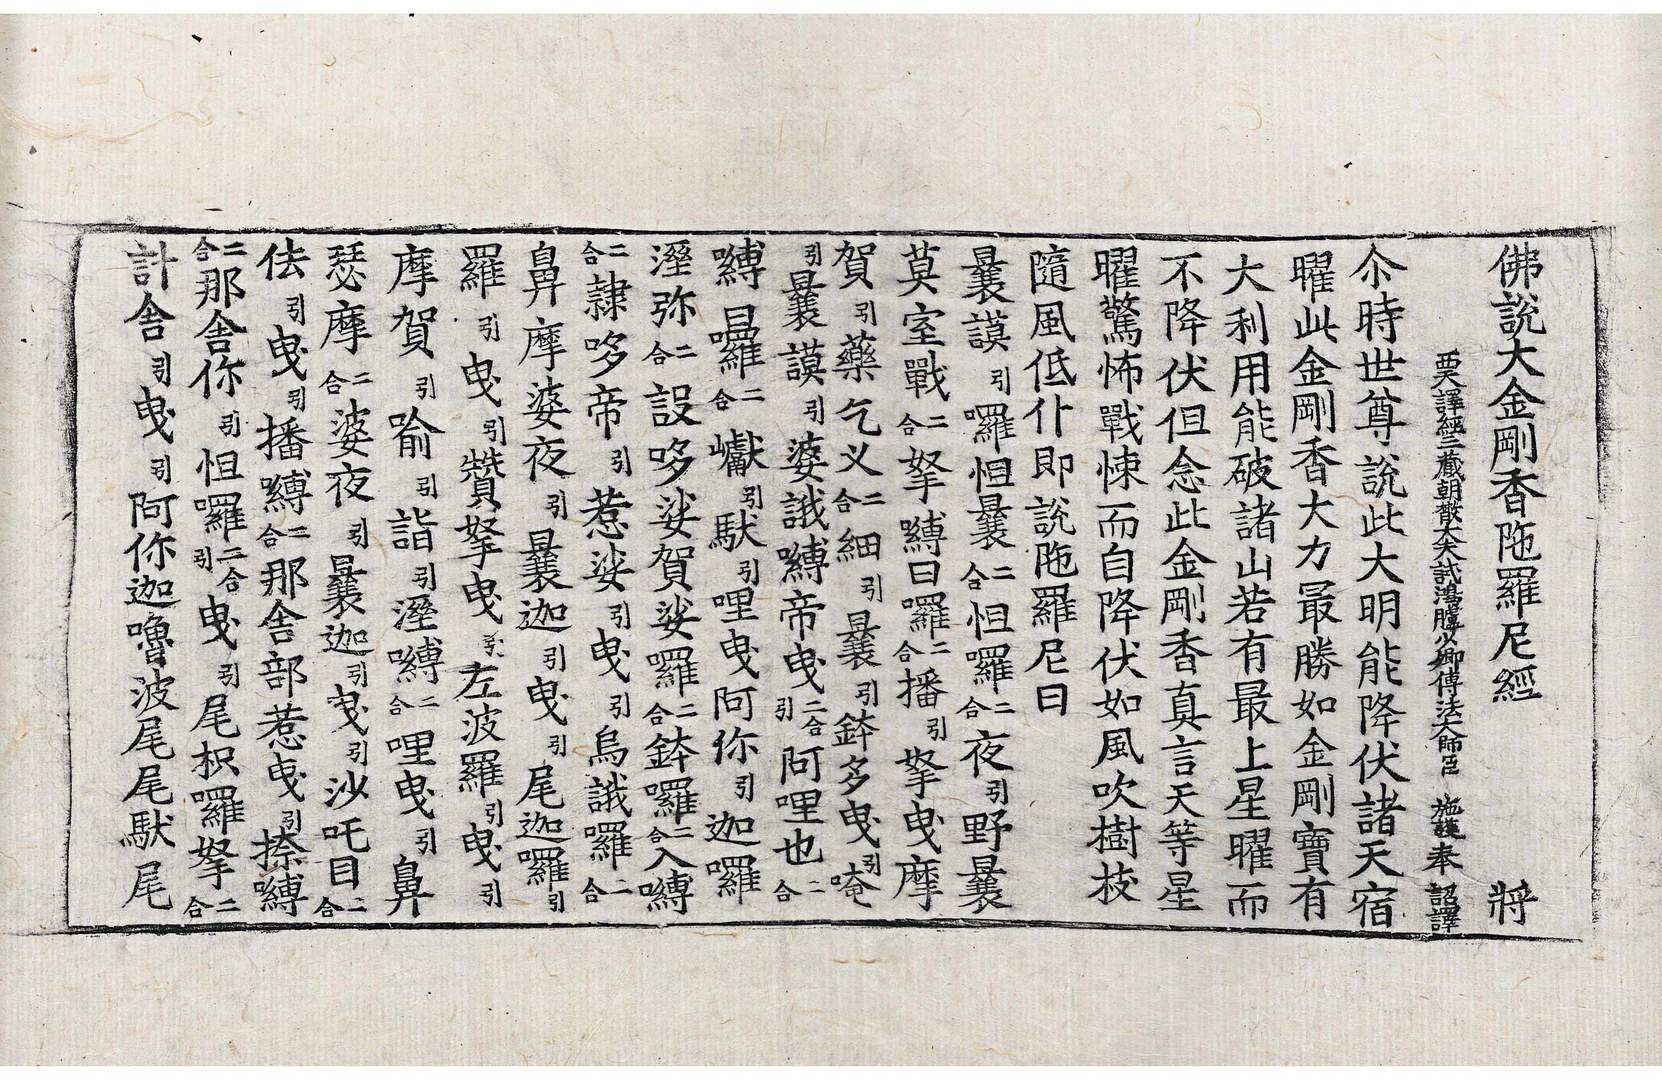 佛說大金剛香陁羅尼經 將
西天譯經三藏朝散大夫試鴻臚少卿傳法大師臣 施護奉 詔譯
尒時世尊說此大明能降伏諸天宿
曜此金剛香大力最勝如金剛寶有
大利用能破諸山若有最上星曜而
不降伏但念此金剛香真言天等星
曜驚怖戰悚而自降伏如風吹樹枝
隨風低仆即說陁羅尼曰
曩謨引囉怛曩二合怛囉二合夜引野曩
莫室戰二合拏嚩日囉二合播引拏曳摩
賀引藥乞叉二合細引曩引鉢多曳引唵
引曩謨引婆誐嚩帝曳二合引阿哩也二合
嚩㘕二合巘引馱引哩曳阿你引迦囉
溼弥二合設哆娑賀娑囉二合鉢囉二合入嚩
二合隷哆帝引惹娑引曳引烏誐囉二合
鼻摩婆夜引曩迦引曳引尾迦囉引
羅引曳引贊拏曳引左波羅引曳引
摩賀引喻引詣引溼嚩二合哩曳引鼻
瑟摩二合婆夜引曩迦引曳引沙吒目二合
佉引曳引播嚩二合那舍部惹曳引捺嚩
二合那舍你引怛囉二合引曳引尾枳囉拏二合
計舍引曳引阿你迦嚕波尾尾馱尾